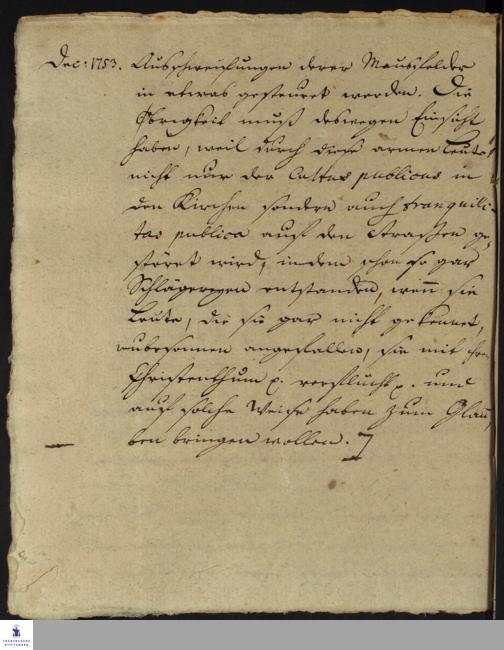 Dec: 1753. Ausschweifungen derer Mansfelder
in etwas gesteuret werden. Die
Obrigkeit muß deswegen Einsicht
haben, weil durch diese armen Leute
nicht nur der Cultus publicus in
den Kirchen sondern auch tranquili-
tas publica auf den Straßen ge-
störet wird, indem schon so gar
Schlägereyen entstanden, wenn sie
Leute, die sie gar nicht gekennet,
unbesonnen angefallen, sie mit ihrem
Christenthum p. verflucht p. und
auf solche Weise haben zum Glau-
ben bringen wollen. ]
FRANCKESCHE
STIFTUNGEN